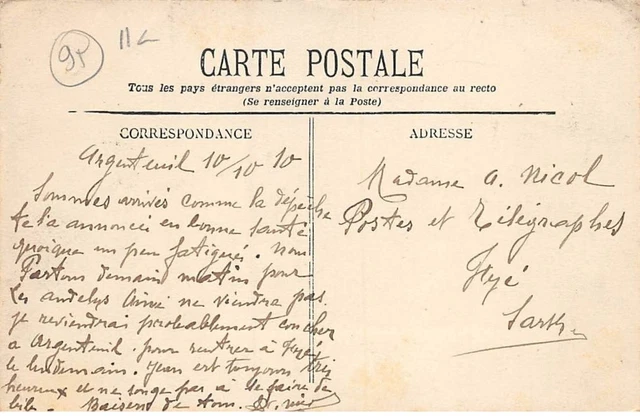 95 11a
CARTE POSTALE
Tous les pays étrangers n'acceptent pas la correspondance au recto
(Se renseigner à la Poste)
CORRESPONDANCE
Argenteuil 10/10 10
Sommes arrivés comme la dépêche
te l'a annoncé en bonne santé
quoique un peu fatigués. Nous
Partons demain matin pour
Les andelys Aimé ne viendra pas.
je reviendrai probablement coucher
a Argenteuil pour rentrer à Fyé
le lendemain. Jean est toujours très
heureux et ne songe pas à se faire de
bile. Baisers de tous.
ADRESSE
Madame A. Nicol
Postes et Télégraphes
Fyé
Sarthe